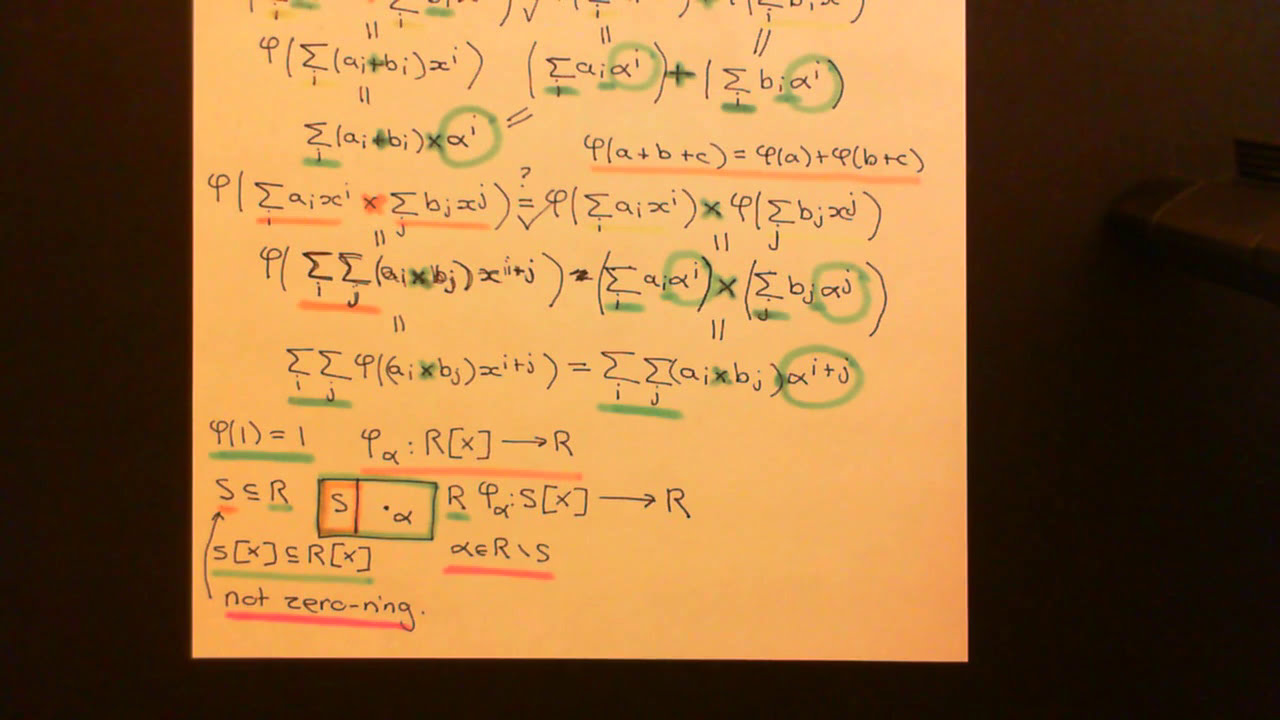 φ(∑ᵢ(aᵢ+bᵢ)xⁱ) (∑ᵢaᵢαⁱ)+(∑ᵢbᵢαⁱ)
∑ᵢ(aᵢ+bᵢ)×αⁱ =
φ(a+b+c)=φ(a)+φ(b+c)
φ(∑ᵢaᵢxⁱ × ∑ⱼbⱼxʲ) =? ✓ φ(∑ᵢaᵢxⁱ) × φ(∑ⱼbⱼxʲ)
φ(∑ᵢ∑ⱼ(aᵢ×bⱼ)xⁱ⁺ʲ) = (∑ᵢaᵢαⁱ) × (∑ⱼbⱼαʲ)
∑ᵢ∑ⱼφ((aᵢ×bⱼ)xⁱ⁺ʲ) = ∑ᵢ∑ⱼ(aᵢ×bⱼ)αⁱ⁺ʲ
φ(1)=1 φ_α : R[x] ⟶ R
S⊆R S ·α R φ_α : S[x] ⟶ R
S[x]⊆R[x] α∈R\S
not zero-ring.